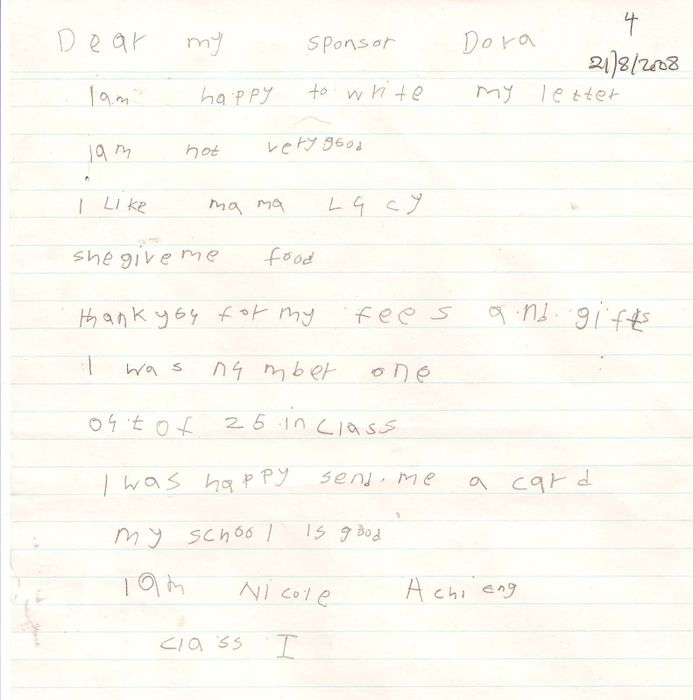 4
Dear my sponsor Dora
21/8/2008
Iam happy to write my letter
Iam not very good
I Like mama Lucy
she give me food
thank you for my fees and gifts
I was number one
out of 26 in class
I was happy send me a card
my school is good
I am Nicole Achieng
class I